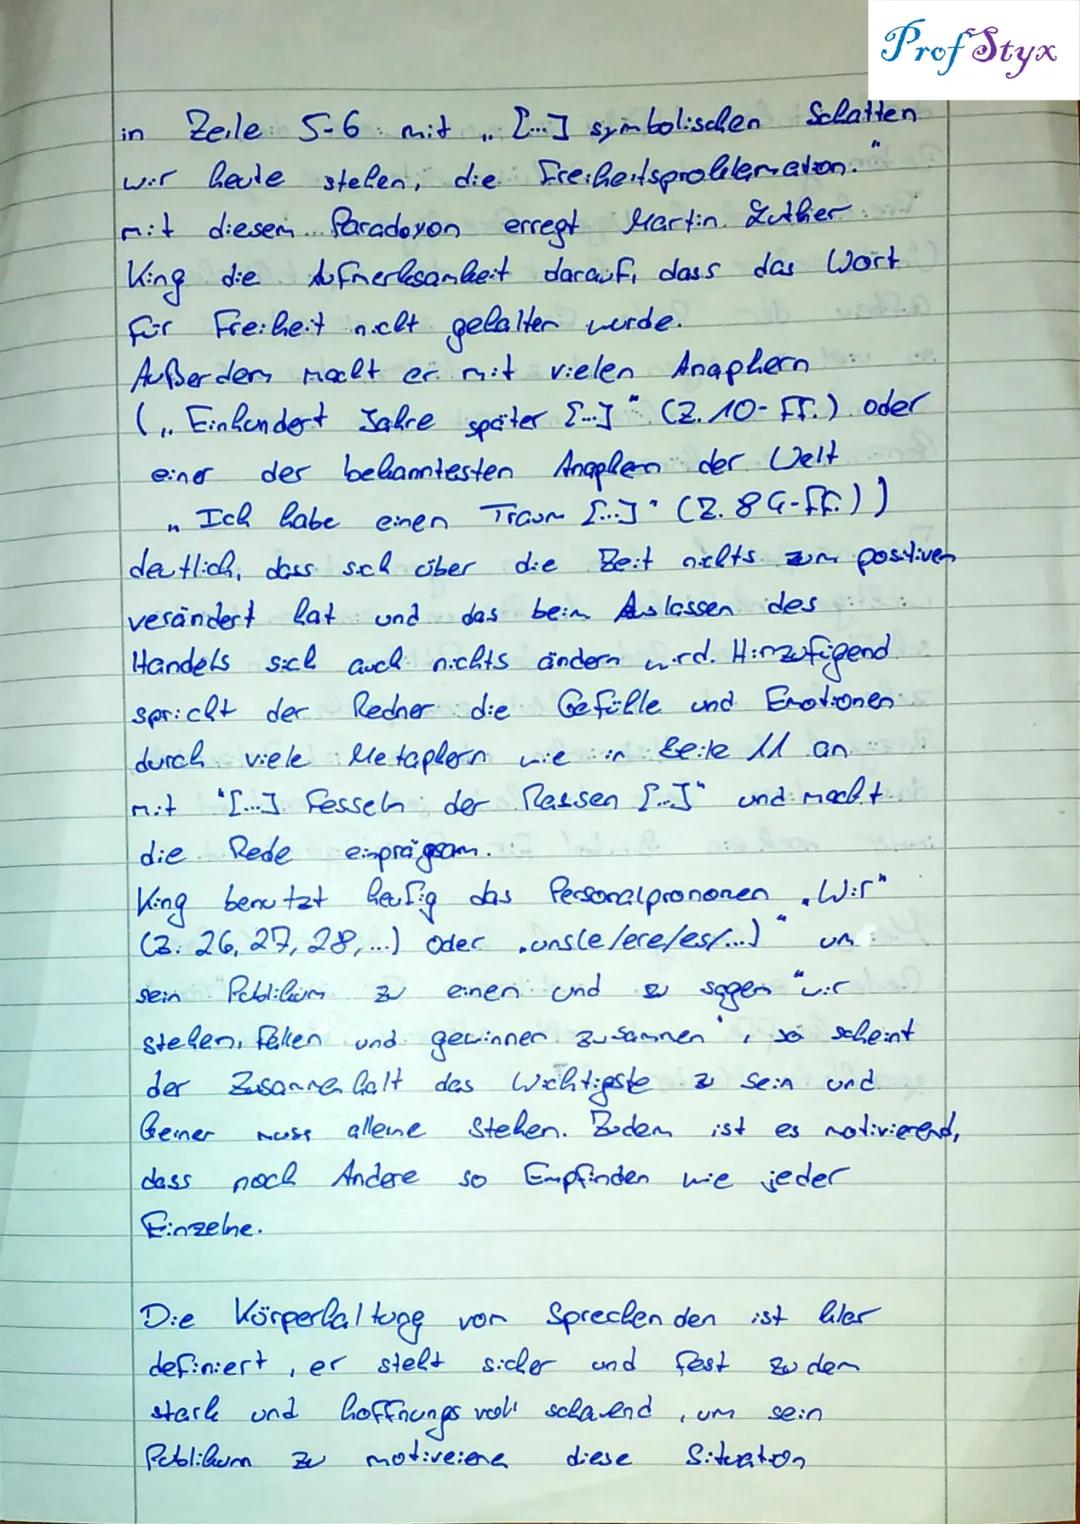 Prof Styx
in Zeile 5-6 mit „ [...] symbolischen Schatten
wir heute stehen, die Freiheitsproklamation."
mit diesem Paradoxon erregt Martin Luther
King die Aufmerksamkeit darauf, dass das Wort
für Freiheit nicht gehalten wurde.
Außerdem macht er mit vielen Anaphern
(„ Einhundert Jahre später [...]" (Z. 10-ff.) oder
einer der bekanntesten Anaphern der Welt
„ Ich habe einen Traum [...]" (Z. 84-ff.))
deutlich, dass sich über die Zeit nichts zum positiven
verändert hat und das beim Auslassen des
Handels sich auch nichts ändern wird. Hinzufügend
spricht der Redner die Gefühle und Emotionen
durch viele Metaphern wie in Zeile 11 an
mit "[...] Fesseln der Rassen [...]" und macht
die Rede einprägsam.
King benutzt häufig das Personalpronomen „Wir"
(Z. 26, 27, 28, ...) oder „uns(e/ere/es/...)" um
sein Publikum zu einen und zu sagen "wir
stehen, fallen und gewinnen zusammen", so scheint
der Zusammenhalt das Wichtigste zu sein und
keiner muss alleine stehen. Zudem ist es motivierend,
dass noch Andere so Empfinden wie jeder
Einzelne.
Die Körperhaltung vom Sprechenden ist klar
definiert, er steht sicher und fest zu dem
stark und hoffnungsvoll schauend, um sein
Publikum zu diese Situation